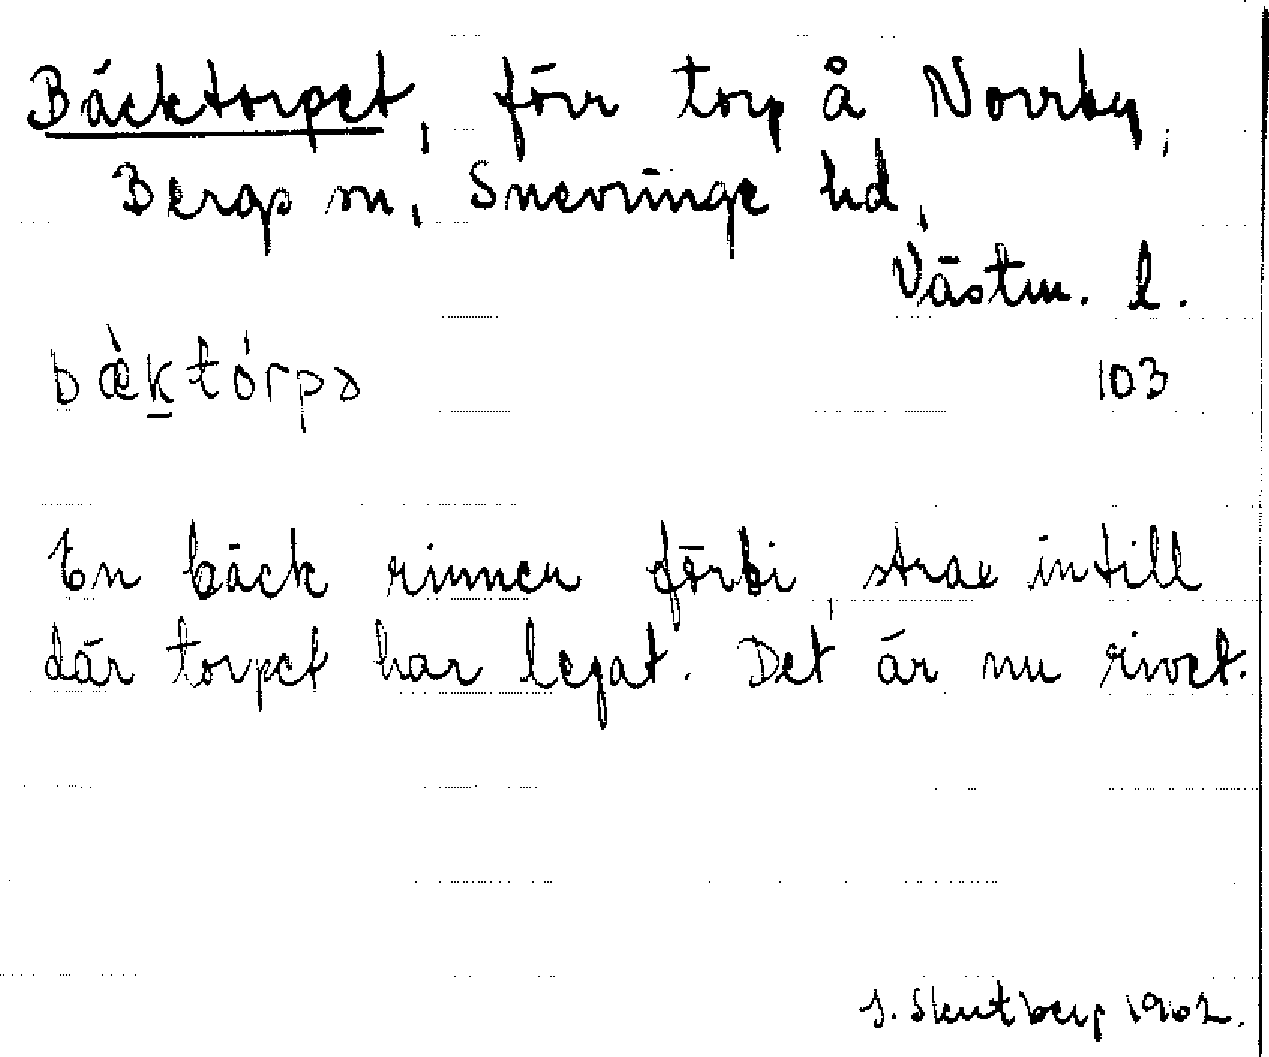 Bäcktorpet, förr torp å Norrby,
Bergs sn, Snevringe hd,
Västm. l.
bæ̀k̠tórpə
103
En bäck rinner förbi, strax intill
där torpet har legat. Det är nu rivet.
S. Skutberg 1962.